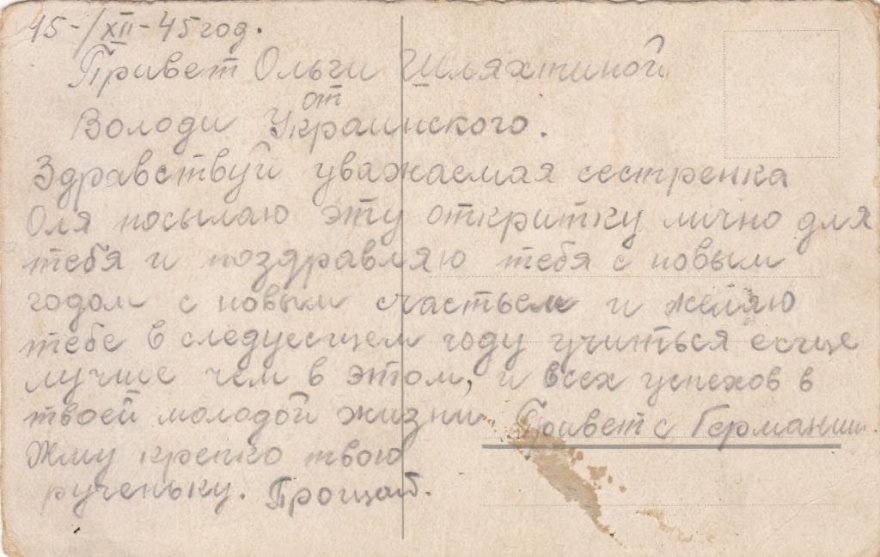 15-/XII-45 год.
Привет Ольги Шляхтиной
от
Володи Украинского.
Здравствуй уважаемая сестренка
Оля посылаю эту открытку лично для
тебя и поздравляю тебя с новым
годом с новым счастьем и желяю
тебе в следуещем году учиться есще
лучше чем в этом, и всех успехов в
твоей молодой жизни Привет с Германии.
Жму крепко твою
рученьку. Прощай.